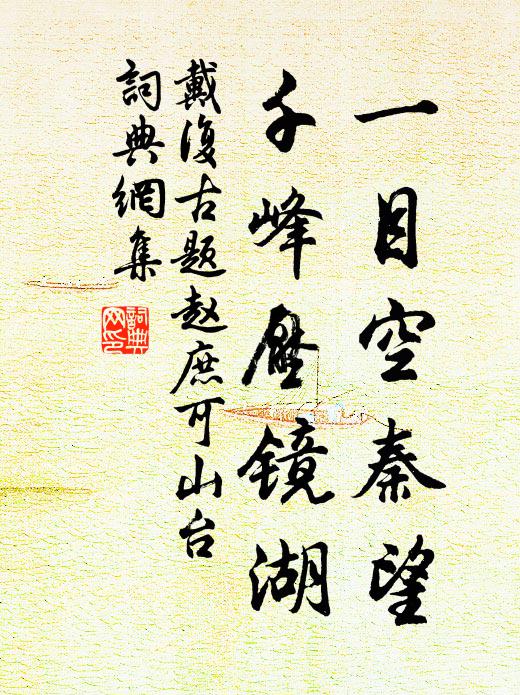 一目空秦望
千峰壓镜湖
戴復古题赵庶可山台
詞典網集
詞典网印